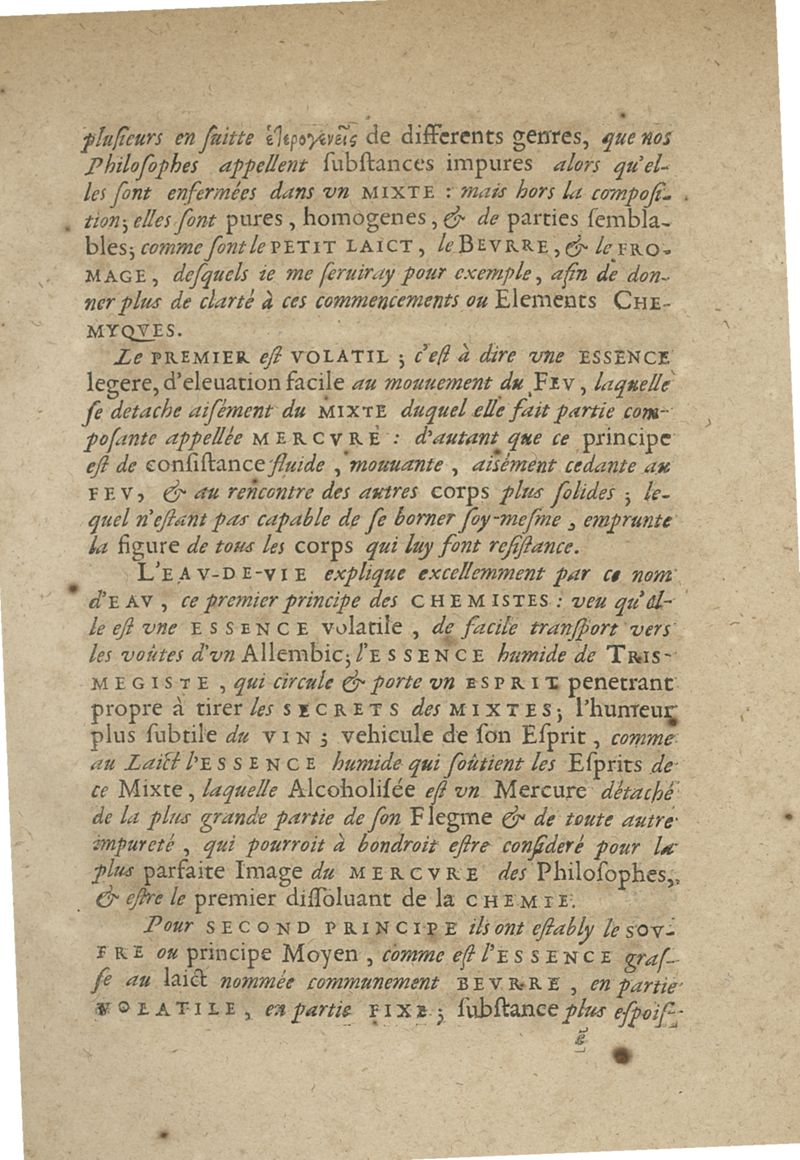 pluſieurs en ſuitte ἑτερογενεῖς de differents genres, que nos
Philoſophes appellent ſubſtances impures alors qu'el-
les ſont enfermées dans vn MIXTE : mais hors la compoſi-
tion; elles ſont pures, homogenes, & de parties ſembla-
bles; comme ſont le PETIT LAICT, le BEVRRE, & le FRO-
MAGE, deſquels ie me ſeruiray pour exemple, afin de don-
ner plus de clarté à ces commencements ou Elements CHE-
MYQVES.
Le PREMIER eſt VOLATIL ; c'eſt à dire vne ESSENCE
legere, d'eleuation facile au mouuement du FEV, laquelle
ſe detache aiſément du MIXTE duquel elle fait partie com-
poſante appellée MERCVRE : d'autant que ce principe
eſt de conſiſtance fluide, mouuante, aisément cedante au
FEV, & au rencontre des autres corps plus ſolides ; le-
quel n'eſtant pas capable de ſe borner ſoy-meſme, emprunte
la figure de tous les corps qui luy font reſiſtance.
L'EAV-DE-VIE explique excellemment par ce nom
d'EAV, ce premier principe des CHEMISTES : veu qu'el-
le eſt vne ESSENCE volatile, de facile tranſport vers
les voûtes d'vn Allembic; l'ESSENCE humide de TRIS-
MEGISTE, qui circule & porte vn ESPRIT penetrant
propre à tirer les SECRETS des MIXTES; l'humeur
plus ſubtile du VIN ; vehicule de ſon Eſprit, comme
au Laict l'ESSENCE humide qui ſoûtient les Eſprits de
ce Mixte, laquelle Alcoholiſée eſt vn Mercure détaché
de la plus grande partie de ſon Flegme & de toute autre
impureté, qui pourroit à bondroit eſtre conſideré pour la
plus parfaite Image du MERCVRE des Philoſophes,
& eſtre le premier diſſoluant de la CHEMIE.
Pour SECOND PRINCIPE ils ont eſtably le SOV-
FRE ou principe Moyen, comme eſt l'ESSENCE graſ-
ſe au laict nommée communement BEVRRE, en partie
VOLATILE, en partie FIXE; ſubſtance plus eſpoiſ-
ẽ